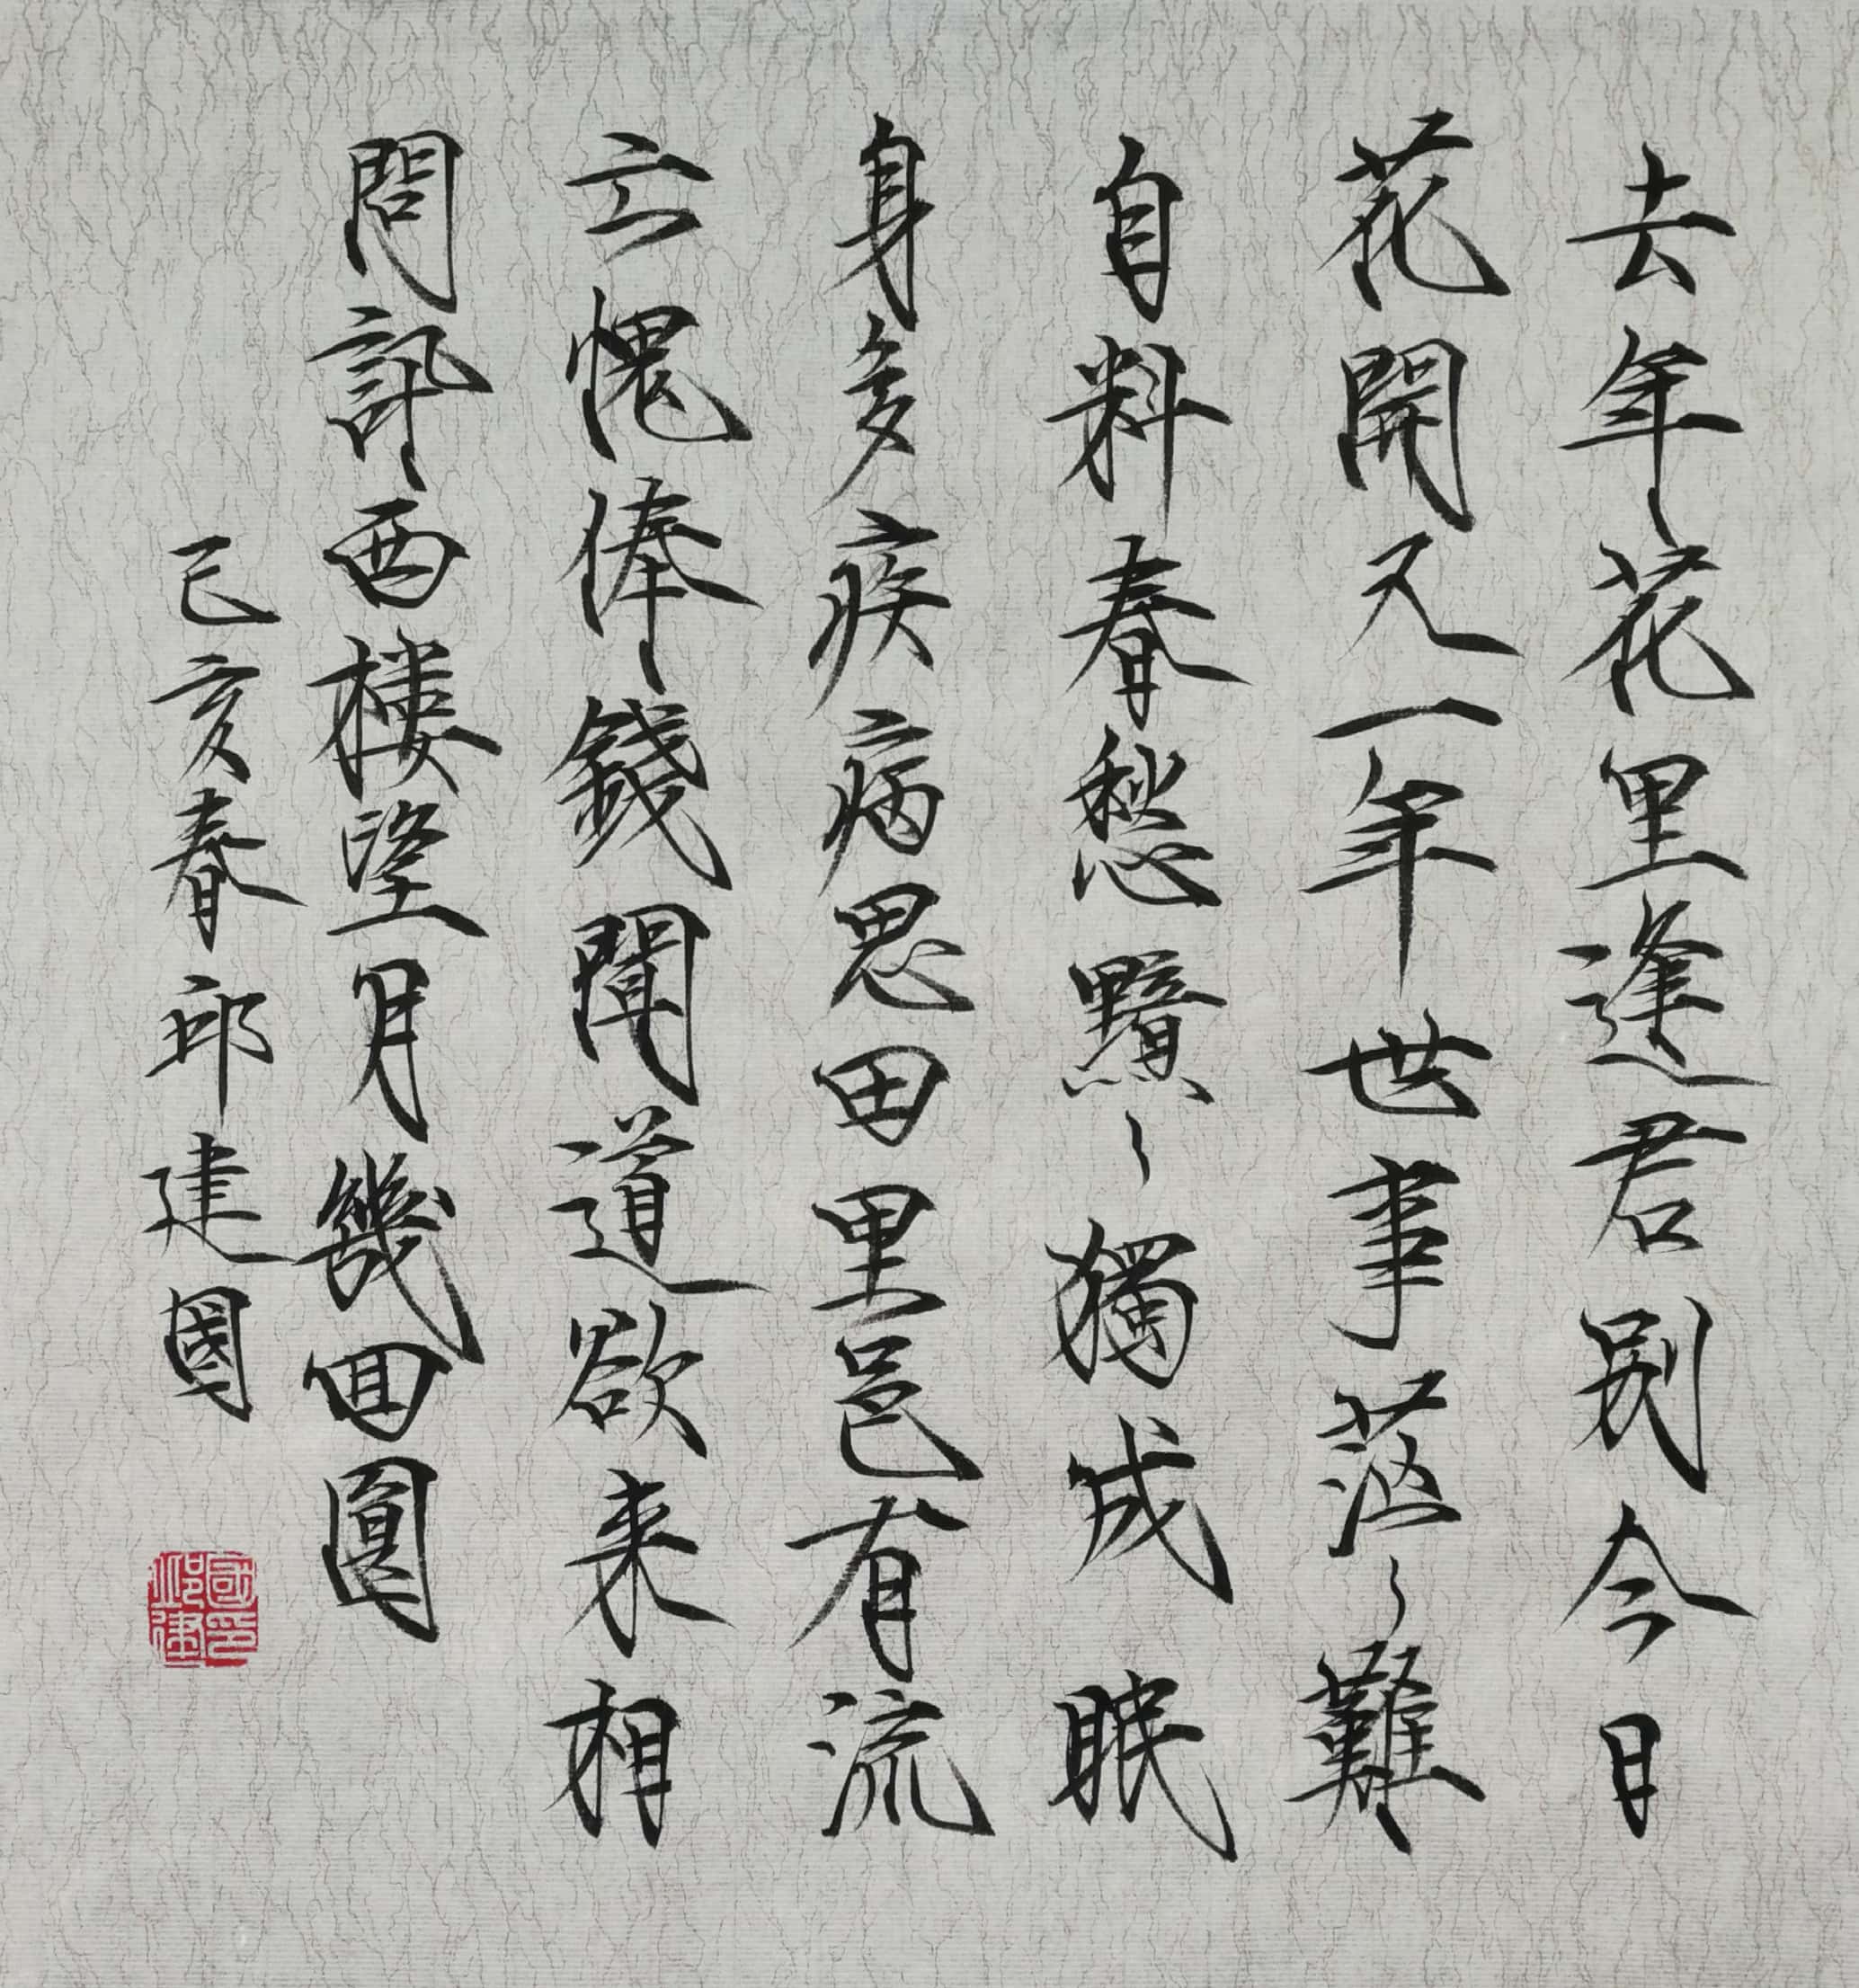 去年花里逢君别今日
花開又一年世事茫々難
自料春愁黯々獨成眠
身多疾病思田里邑有流
亡愧俸錢聞道欲来相
問訊西樓望月幾回圓
己亥春邱建國
邱建國印